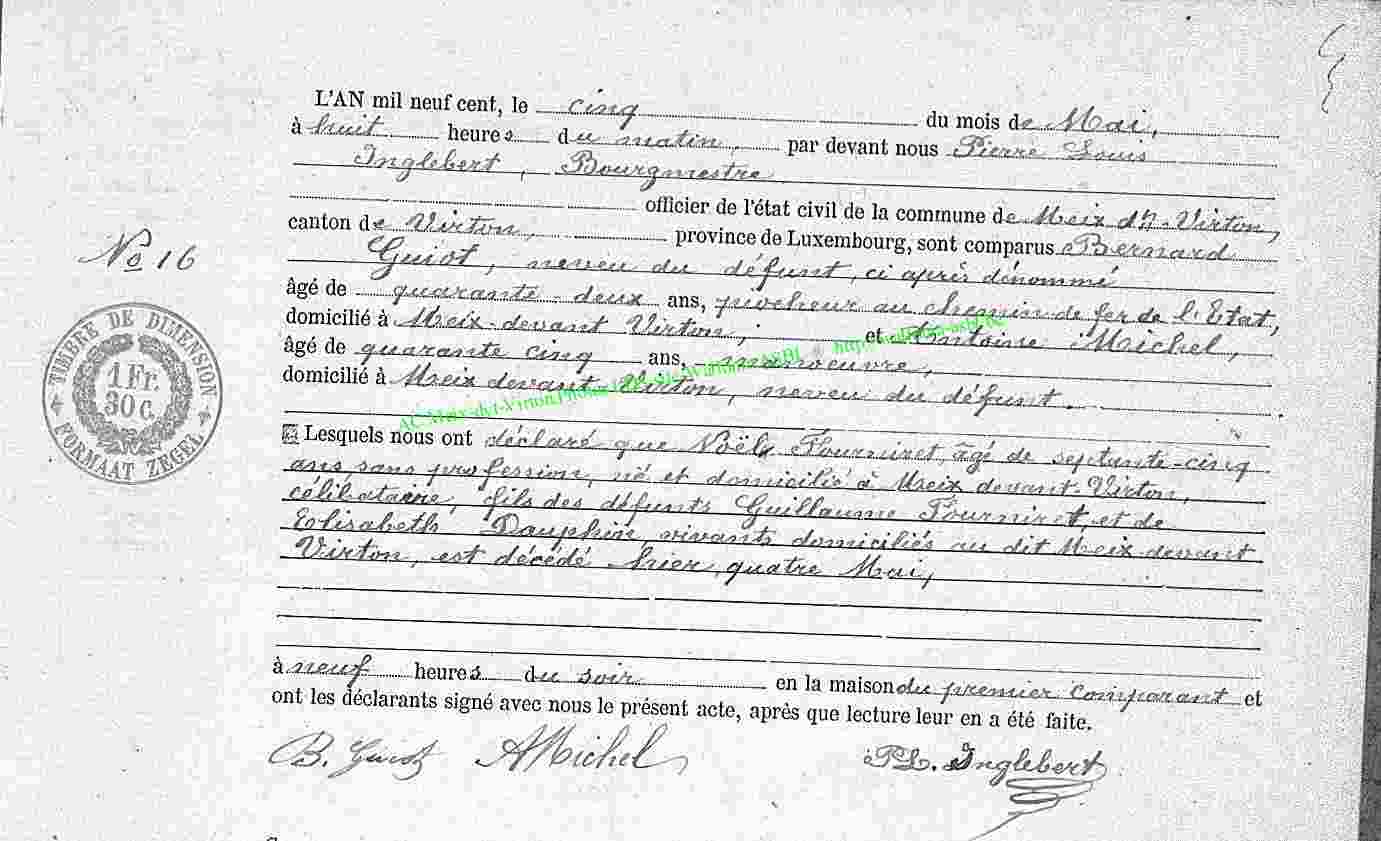 L'AN mil neuf cent, le cinq du mois de Mai,
à huit heures du matin, par devant nous Pierre Louis
Inglebert, Bourgmestre
officier de l'état civil de la commune de Meix dt-Virton,
canton de Virton, province de Luxembourg, sont comparus Bernard
Guiot, neveu du défunt, ci après dénommé
âgé de quarante-deux ans, piocheur au chemin de fer de l'Etat,
domicilié à Meix-devant Virton; et Antoine Michel,
âgé de quarante cinq ans, manoeuvre,
domicilié à Meix devant-Virton, neveu du défunt.
Lesquels nous ont déclaré que Noël Fourniret, âgé de septante-cinq
ans sans profession, né et domicilié à Meix devant-Virton,
célibataire, fils des défunts Guillaume Fourniret, et de
Elisabeth Dauphin, vivants domiciliés au dit Meix devant
Virton, est décédé hier, quatre Mai,
à neuf heures du soir en la maison du premier comparant et
ont les déclarants signé avec nous le présent acte, après que lecture leur en a été faite.
B. Guiot AMichel PL. Inglebert
No 16
TIMBRE DE DIMENSION
1 Fr.
30 C.
FORMAAT ZEGEL